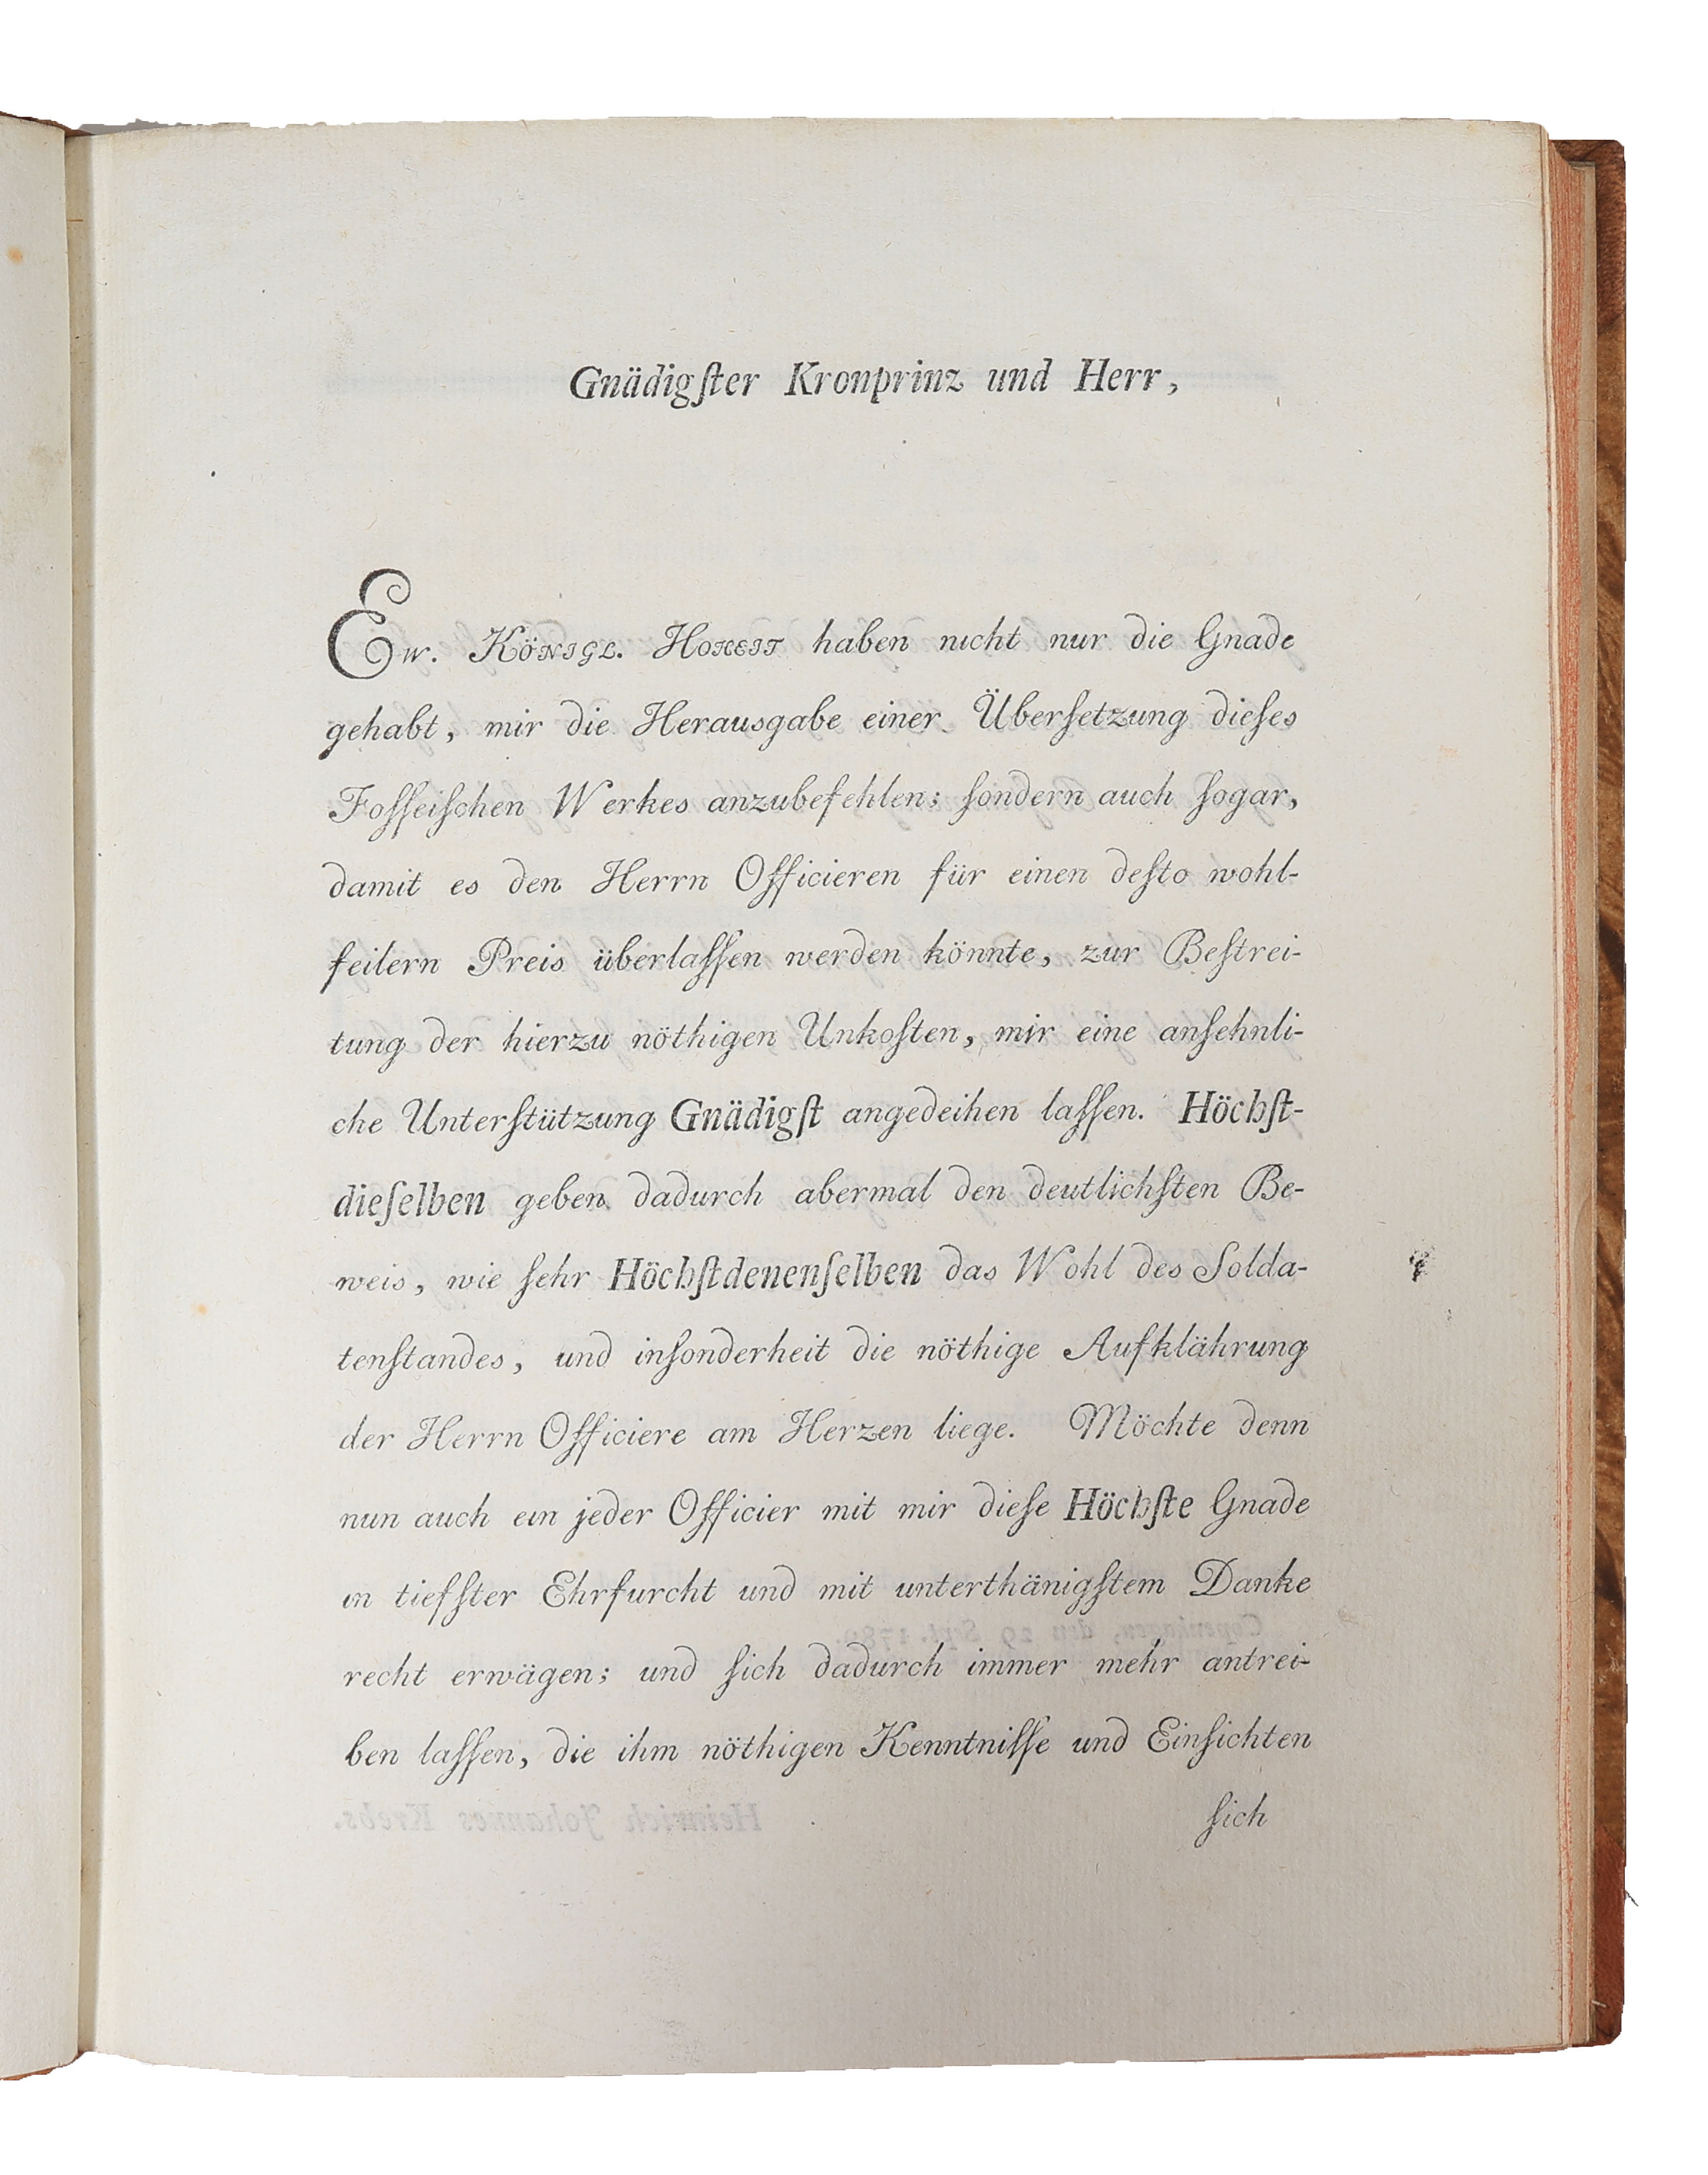 Gnädigſter Kronprinz und Herr,
Ew. Königl. Hoheit haben nicht nur die Gnade
gehabt, mir die Herausgabe einer Überſetzung dieſes
Foſſeiſchen Werkes anzubefehlen; ſondern auch ſogar,
damit es den Herrn Officieren für einen deſto wohl-
feilern Preis überlaſſen werden könnte, zur Beſtrei-
tung der hierzu nöthigen Unkoſten, mir eine anſehnli-
che Unterſtützung Gnädigſt angedeihen laſſen. Höchſt-
dieſelben geben dadurch abermal den deutlichſten Be-
weis, wie ſehr Höchſtdenenſelben das Wohl des Solda-
tenſtandes, und inſonderheit die nöthige Aufklährung
der Herrn Officiere am Herzen liege. Möchte denn
nun auch ein jeder Officier mit mir dieſe Höchſte Gnade
in tiefſter Ehrfurcht und mit unterthänigſtem Danke
recht erwägen; und ſich dadurch immer mehr antrei-
ben laſſen, die ihm nöthigen Kenntniſſe und Einſichten
ſich